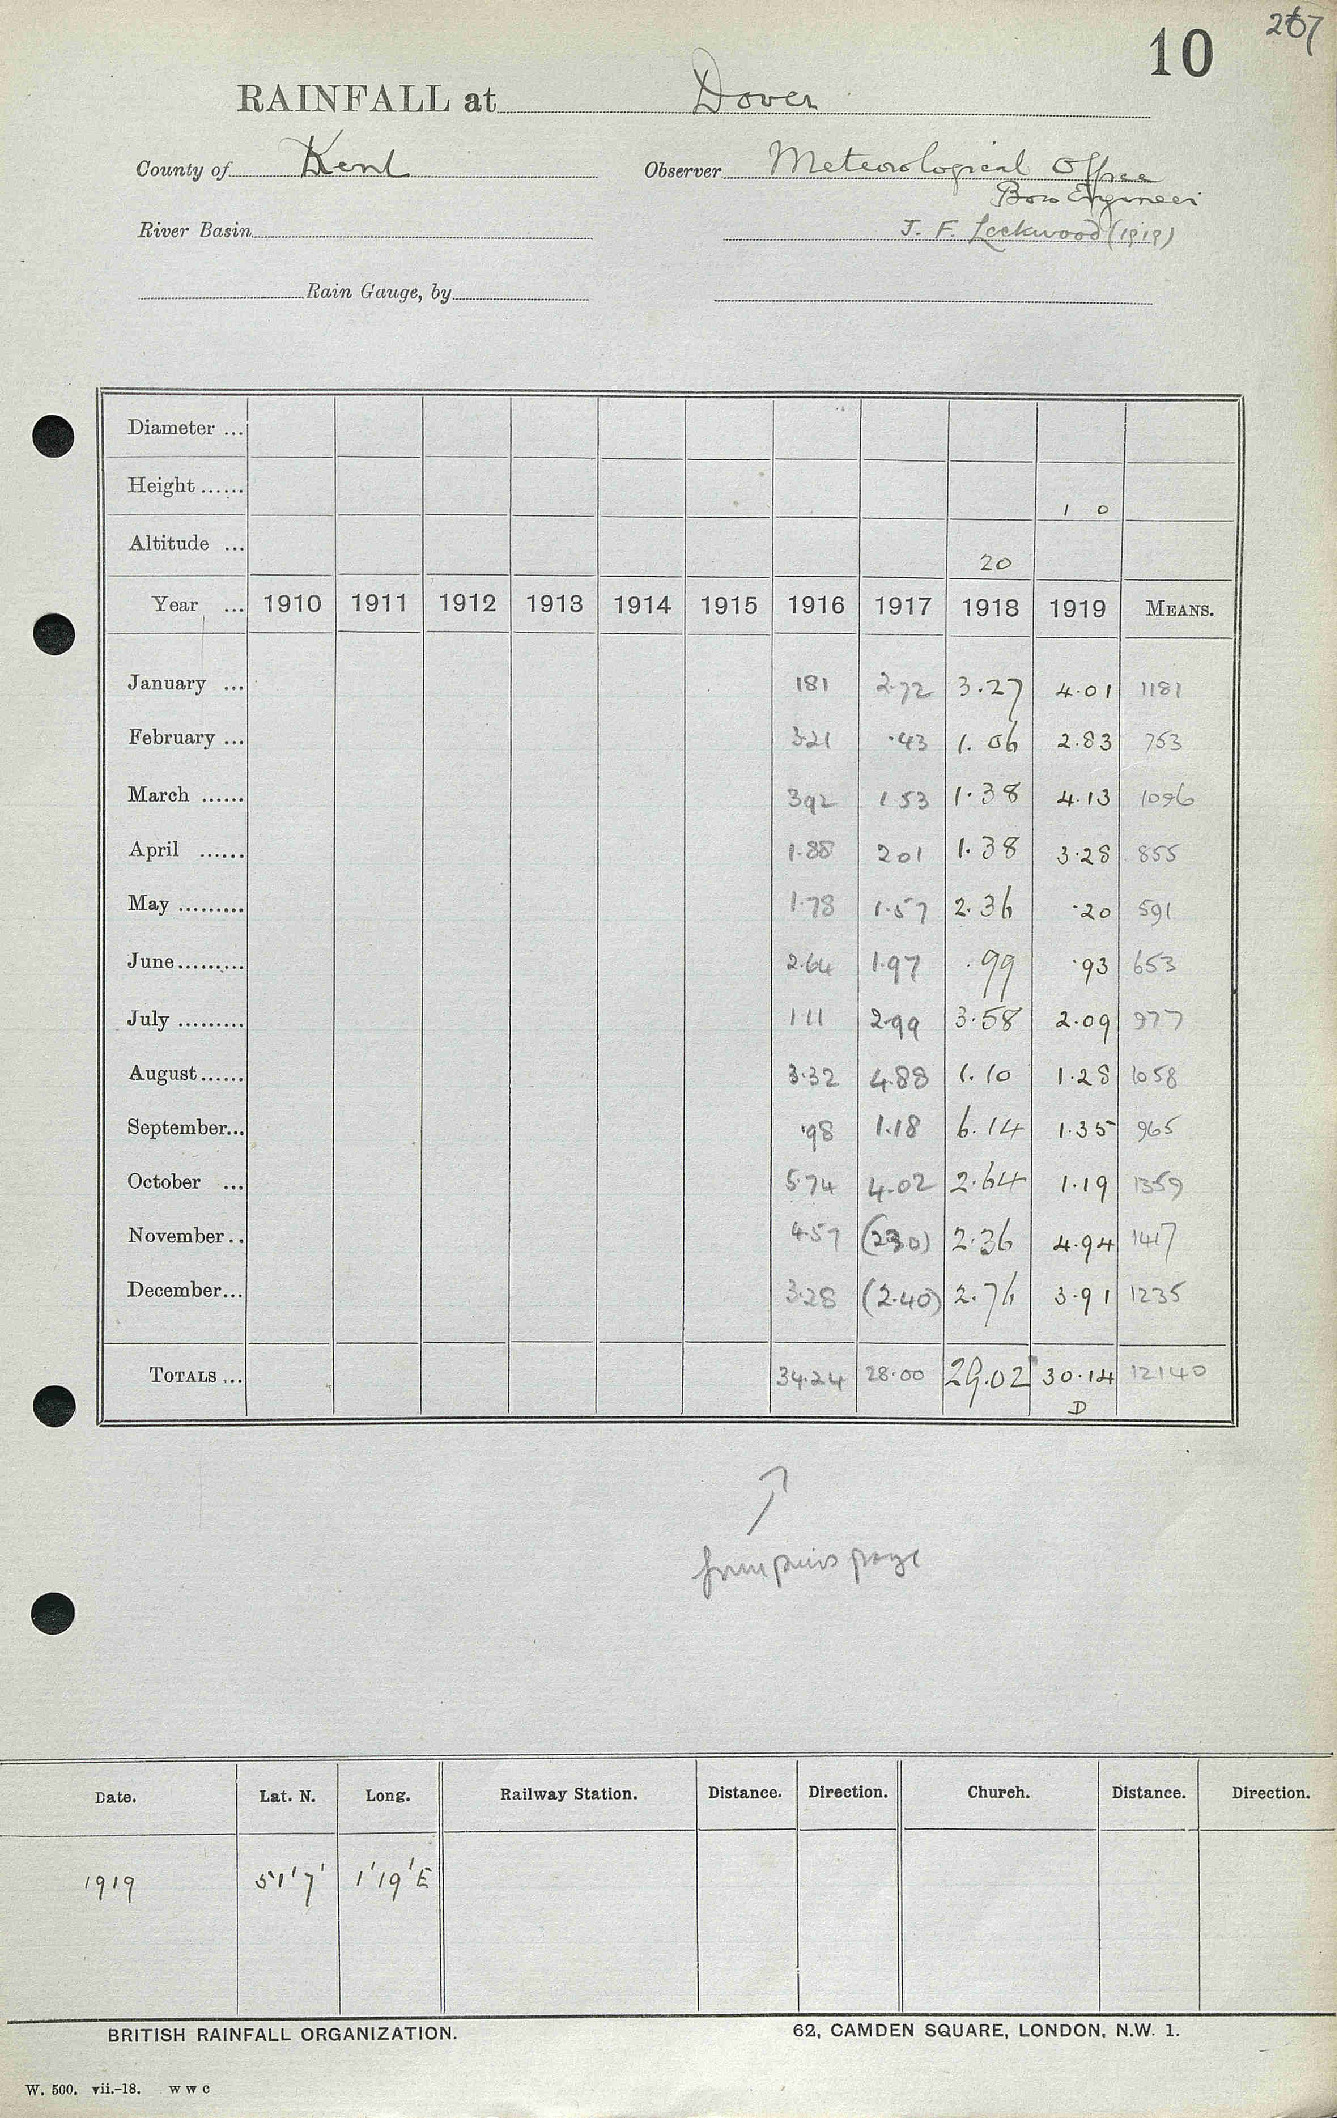 267
10
RAINFALL at Dover
County of Kent Observer Meteorological Office
Boro Engineer
River Basin J. F. Lockwood (1919)
Rain Gauge, by
Diameter ...
Height ...... 1 0
Altitude ... 20
Year ... 1910 1911 1912 1913 1914 1915 1916 1917 1918 1919 MEANS.
January ... 181 2.72 3.27 4.01 1181
February ... 3.21 .43 1.06 2.83 753
March ...... 392 1 53 1.38 4.13 1096
April ...... 1.88 201 1.38 3.28 855
May ......... 1.78 1.57 2.36 .20 591
June......... 2.64 1.97 .99 .93 653
July ......... 1 11 2.99 3.58 2.09 977
August...... 3.32 4.88 1.10 1.28 1058
September... .98 1.18 6.14 1.35 965
October ... 5.74 4.02 2.64 1.19 1359
November.. 4.57 (2.30) 2.36 4.94 1417
December... 3.28 (2.40) 2.76 3.91 1235
TOTALS ... 34.24 28.00 29.02 30.14 12140
D
from previs page
Date. Lat. N. Long. Railway Station. Distance. Direction. Church. Distance. Direction.
1919 51'7' 1'19'E
BRITISH RAINFALL ORGANIZATION. 62, CAMDEN SQUARE, LONDON, N.W. 1.
W. 500. vii.-18. W W C